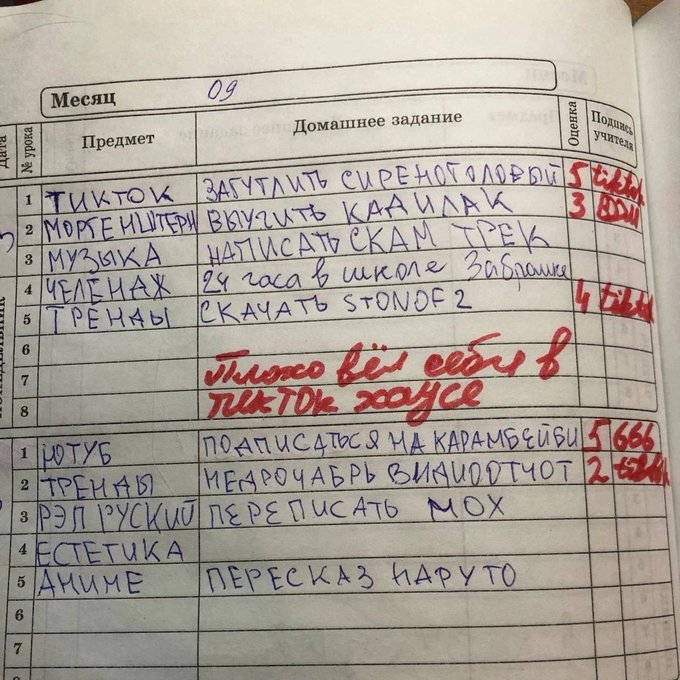 Месяц 09
Дата № урока Предмет Домашнее задание Оценка Подпись учителя
1 ТИКТОК ЗАГУГЛИТЬ СИРЕНОГОЛОВЫЙ 5 tiktok
2 МОРГЕНШТЕРН ВЫУЧИТЬ КАДИЛАК 3
3 МУЗЫКА НАПИСАТЬ СКАМ ТРЕК
4 ЧЕЛЕНАЖ 24 часа в школе Заброшке
5 ТРЕНДЫ СКАЧАТЬ STONOF2 4 tiktok
6
7 Плохо вёл себя в
8 тикток хаусе
1 ЮТУБ ПОДПИСАТЬСЯ НА КАРАМБЕЙБИ 5 666
2 ТРЕНДЫ НЕДРОЧАБРЬ ВИДИООТЧОТ 2
3 РЭП РУСКИЙ ПЕРЕПИСАТЬ МОХ
4 ЕСТЕТИКА
5 АНИМЕ ПЕРЕСКАЗ НАРУТО
6
7
8